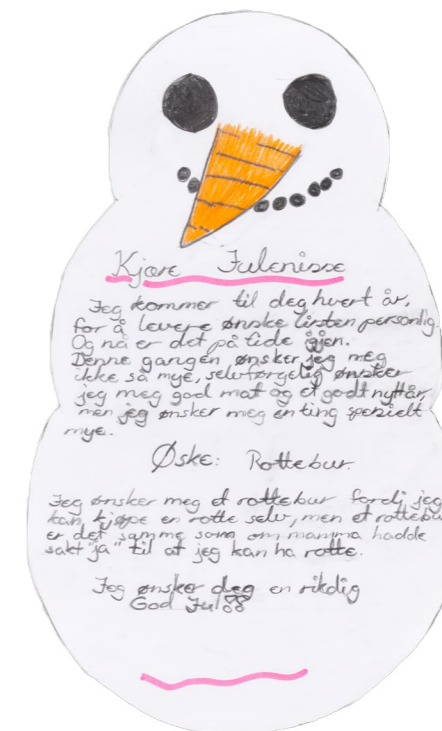 Kjære Julenisse
Jeg kommer til deg hvert år,
for å levere ønske listen personlig.
Og nå er det på tide igjen.
Denne gangen ønsker jeg meg
ikke så mye, selvførgelig ønsker
jeg meg god mat og et godt nyttår,
men jeg ønsker meg en ting spesielt
mye.
Øske: Rottebur.
Jeg ønsker meg et rottebur fordi jeg
kan kjøpe en rotte selv, men et rottebur
er det samme som om mamma hadde
sakt "ja" til at jeg kan ha rotte.
Jeg ønsker deg en riktig
God Jul